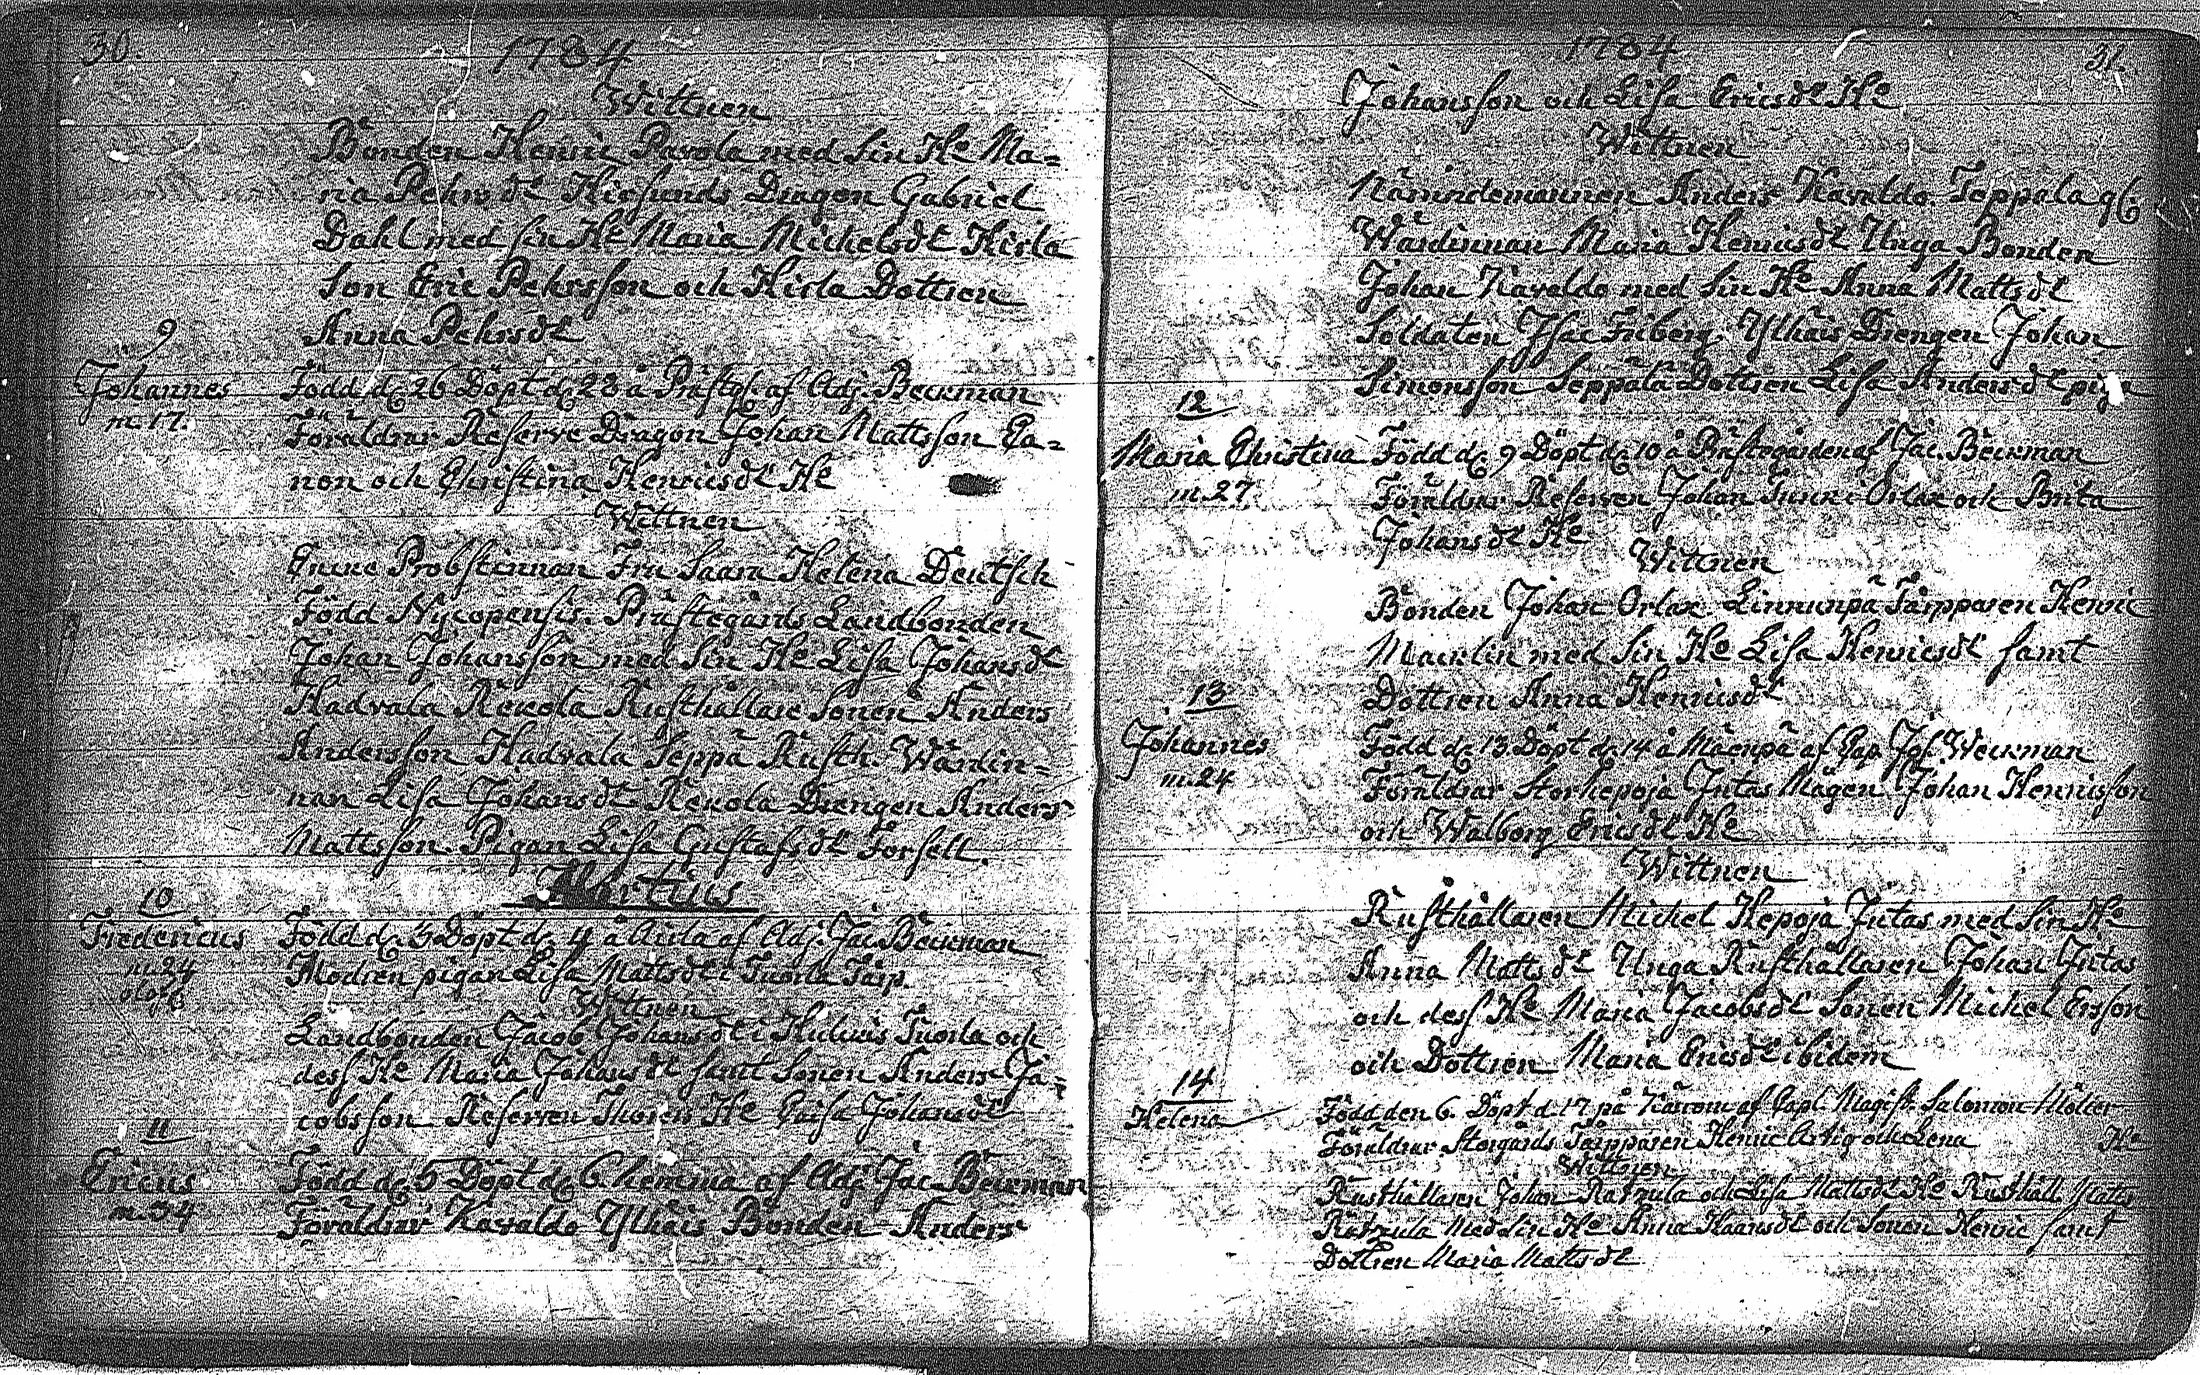 30.
1784
Wittnen
Bonden Henric Pavola med sin H.e Ma=
ria Pehrsdr Dragon Gabriel
Dahl med sin H.e Maria Michelsdr Kirla
Son Eric Pehrsson och Kirla Dottren
Anna Pehrsdr
9
Johannes
m. 17.
Född d. 26 Döpt d. 28 å Prästg. af Adj. Beckman
Föräldrar Reserve Dragon Johan Mattsson
non och Christina Henricsdr H.e
Wittnen
Encke Probstinnan Fru Saara Helena Deutsch
Född Nycopensis. Prästegårds Landbonden
Johan Johansson med sin H.e Lisa Johansdr
Hadvala Rekola Rusthållare Sonen Anders
Andersson Hadvala Seppä Rusth. Wärdin=
nan Lisa Johansdr Rekola Drengen Anders
Mattsson. Pigan Lisa Gustafsdr Forsell.
Martius
10
Fredericus
m. 24
Född d. 3 Döpt d. 4 å af Adj. Jac. Beckman
Modren pigan Lisa Mattsdr i Tuorla Torp.
Wittnen
Landbonden Jacob Johansdr i Tuorla och
dess H.e Maria Johansdr samt Sonen Anders Ja=
cobsson Reserven Thoren H.e Caisa Johansdr
11
Ericus
m. 34
Född d. 5 Döpt d. 6 hemma af Adj. Jac. Beckman
Föräldrar Kavaldo Ylhäis Bonden Anders
1784
31.
Johansson och Lisa Ericsdr H.e
Wittnen
Nämndemannen Anders Kavaldo. Seppälä
Wärdinnan Maria Henricsdr Unga Bonden
Johan Kavaldo med sin H.e Anna Mattsdr
Soldaten Isac Friberg. Ylhäis Drengen Johan
Simonsson Seppälä Dottren Lisa Andersdr piga
12
Maria Christina
m. 27
Född d. 9 Döpt d. 10 å Prästegården af Jac. Beckman
Föräldrar Reserven Johan Orlax och Brita
Johansdr H.e
Wittnen
Bonden Johan Orlax. Linnunpä Torpparen Henric
Macklin med sin H.e Lisa Henricsdr samt
Dottren Anna Henricsdr
13
Johannes
m. 24
Född d. 13 Döpt d. 14 å Mäenpä af Cap. Jos. Weckman
Föräldrar Storhepoja Jutas Mågen Johan Henricsson
och Walborg Ericsdr H.e
Wittnen
Rusthållaren Michel Hepoja Jutas med sin H.e
Anna Mattsdr Unga Rusthållaren Johan Jutas
och dess H.e Maria Jacobsdr Sonen Michel Ersson
och Dottren Maria Ericsdr ibidem
14
Helena
Född den 6. Döpt d. 17 på af Capl. Magist. Salomon Möller
Föräldrar Storgårds Torpparen Henric och Lena H.e
Wittnen
Rusthållaren Johan Ratzula och Lisa Mattsdr H.e Rusthåll. Matts
Ratzula med sin H.e Anna och Sonen Henric samt
Dottren Maria Mattsdr